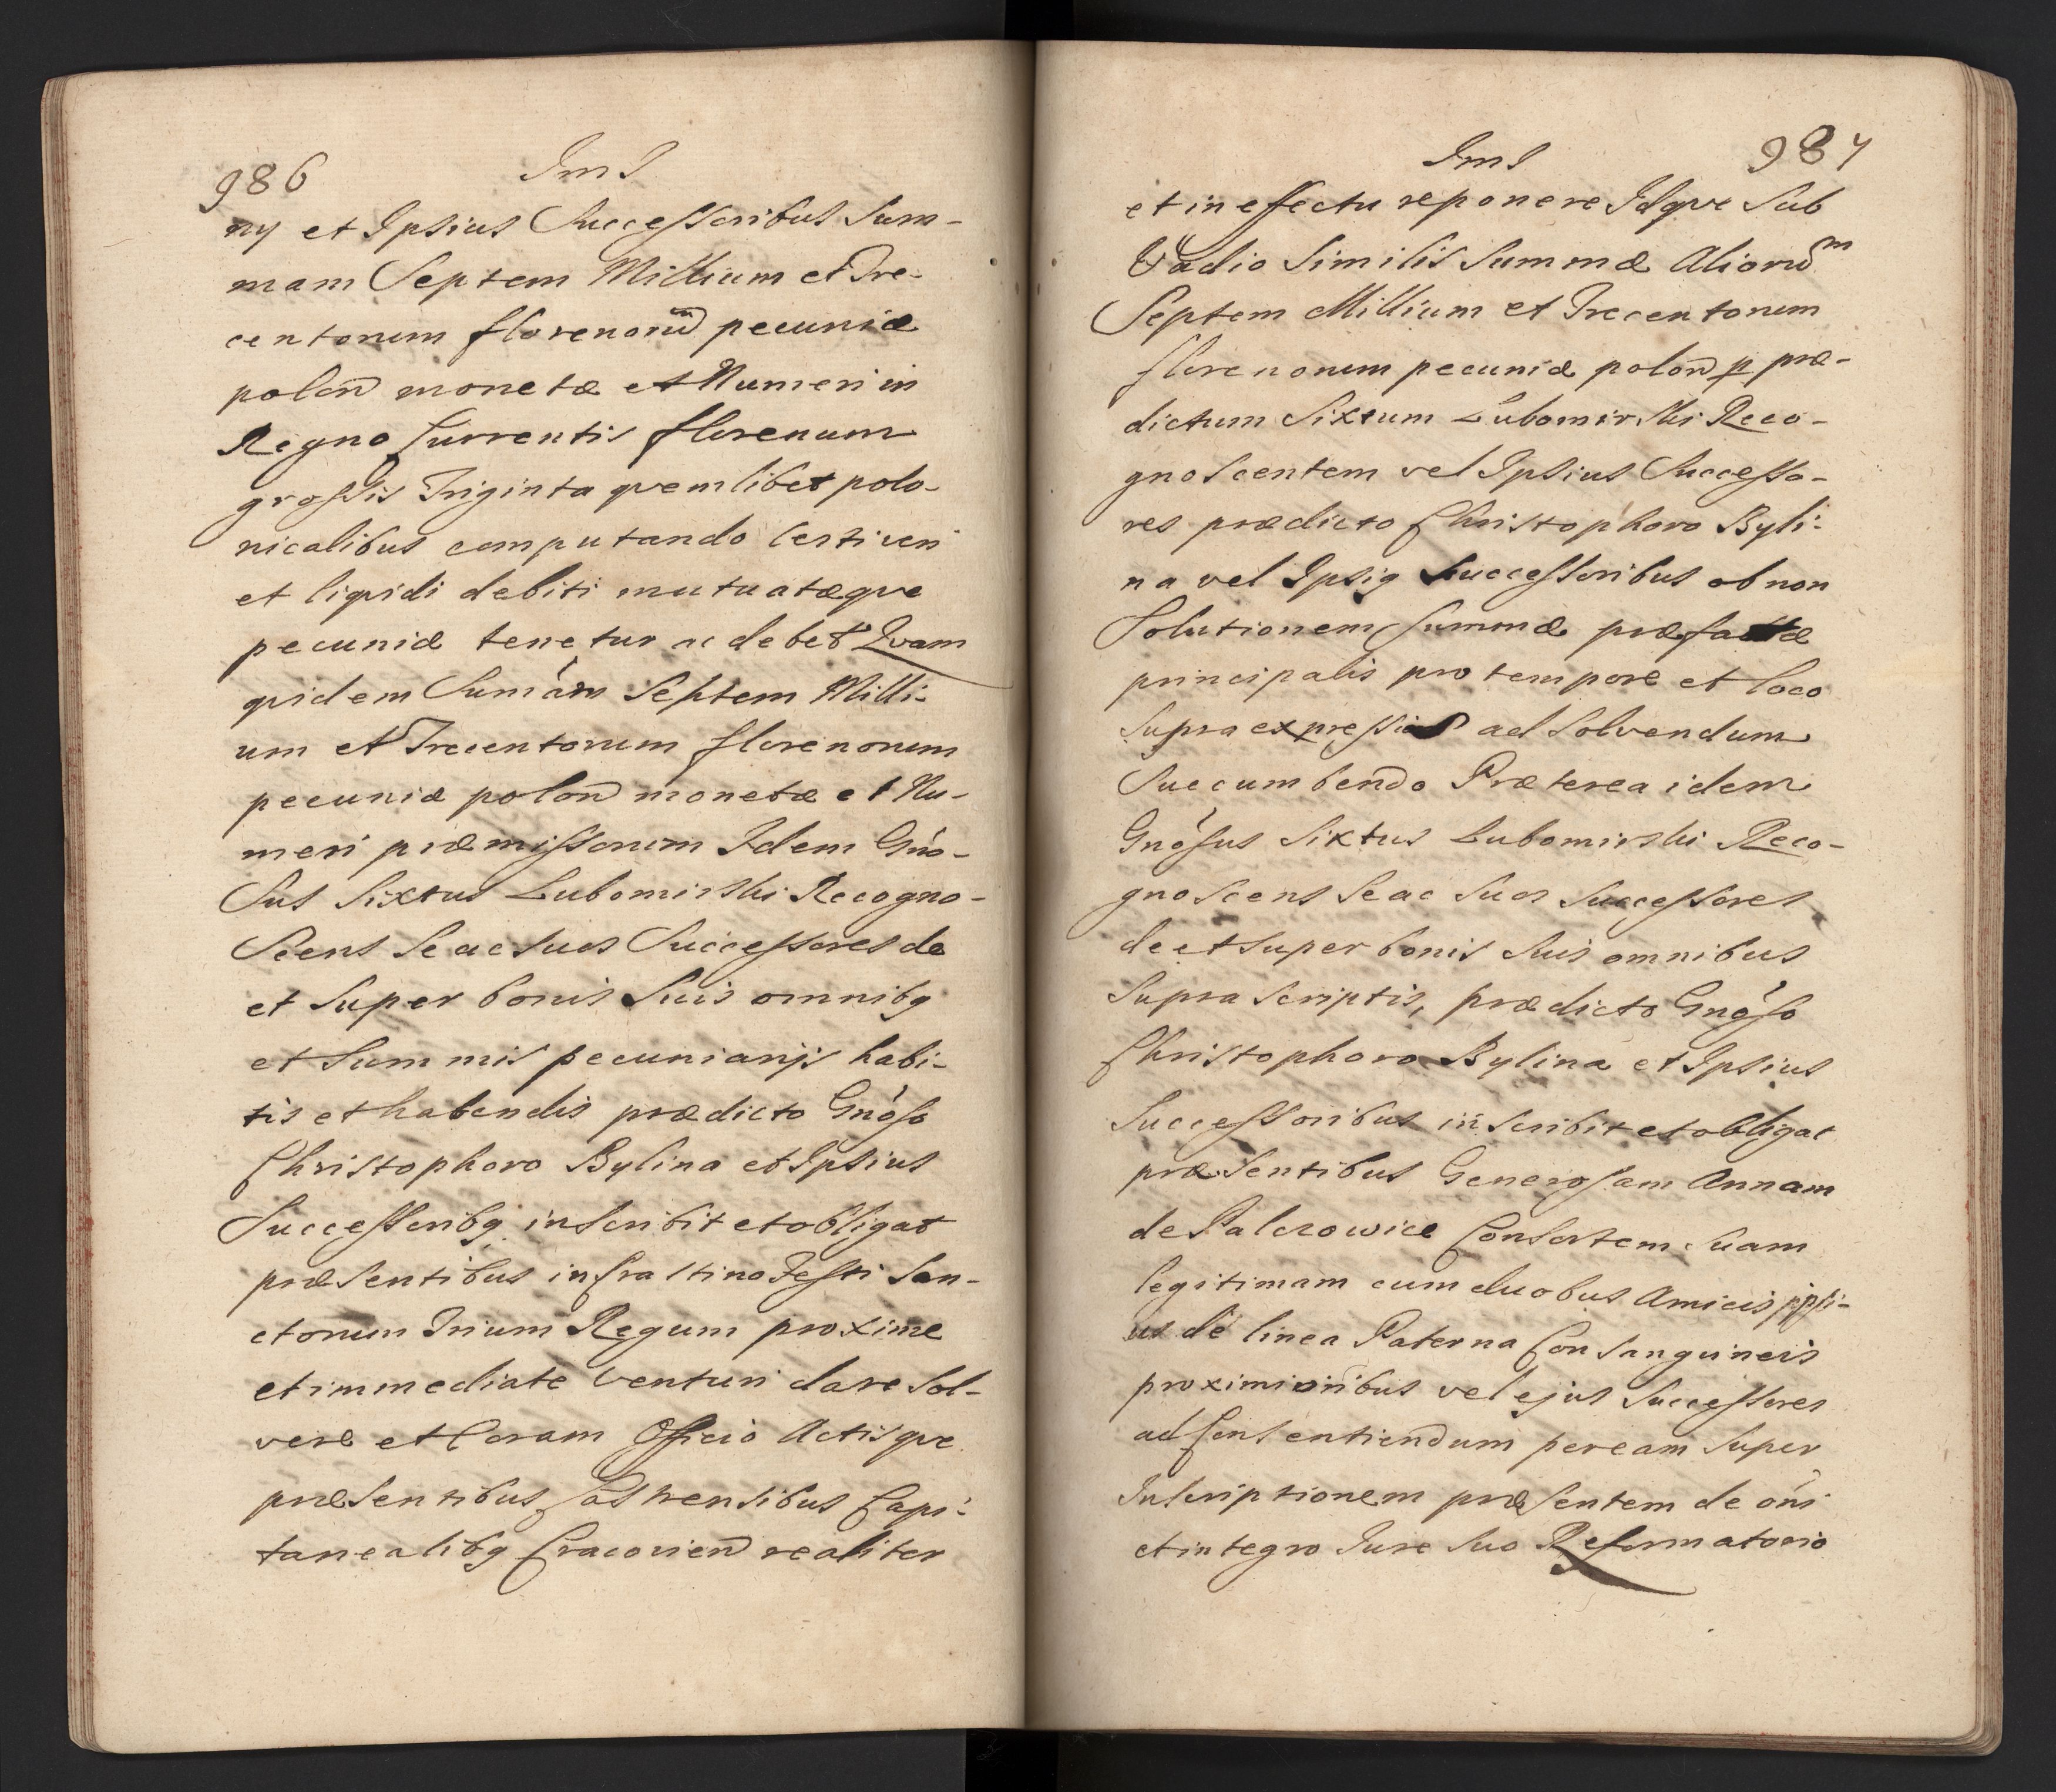 986
JmJ
ny et Ipsius Successoribus Sum-
mam Septem Millium et Tre-
centorum florenorū pecuniæ
polon̄ monetæ et Numeri in
Regno Currentis florenum
grossis Triginta qvemlibet polo-
nicalibus computando Certi veri
et liqvidi debiti mutuatæqve
pecuniæ tenetur ac debet Qvam
qvidem Sum̄am Septem Milli-
um et Trecentorum florenorum
pecuniæ polon̄ monetæ et Nu-
meri præmissorum Idem Gn̄o-
Sus Sixtus Lubomirski Recogno-
Scens Se ac Suos Successores de
et Super bonis Suis omnibq
et Summis pecuniarijs habi-
tis et habendis prædicto Gn̄oso
Christophoro Bylina et Ipsius
Successoribq inscribit et obligat
præsentibus in Crastino Festi San-
ctorum Trium Regum proxime
et immediate venturi dare Sol-
vere et Coram Officio Actisqve
præsentibus Castrensibus Capi-
tanealibq Cracovien̄ realiter
JmJ
987
et in effectu reponere Idqve Sub
Vadio Similis Summæ Aliorūm
Septem Millium et Trecentorum
florenorum pecuniæ polon̄ p præ-
dictum Sixtum Lubomirski Reco-
gnoscentem vel Ipsius Successo-
res prædicto Christophoro Byli-
na vel Ipsiq Successoribus ob non
Solutionem Summæ præfactæ
principalis pro tempore et loco
Supra expressis ad Solvendum
Succumbendo Præterea idem
Gn̄osus Sixtus Lubomirski Reco-
gnoscens Se ac Suos Successores
de et Super bonis Suis omnibus
Supra Scriptis, prædicto Gn̄oso
Christophoro Bylina et Ipsius
Successoribus inscribit et obligat
præsentibus Generosam Annam
de Palczowice Consortem Suam
legitimam cum duobus Amicis ipsi-
us de linea Paterna Consangvineis
proximioribus vel ejus Successores
ad Consentiendum per eam Super
Inscriptionem præsentem de ōni
et integro Jure Suo Reformatorio